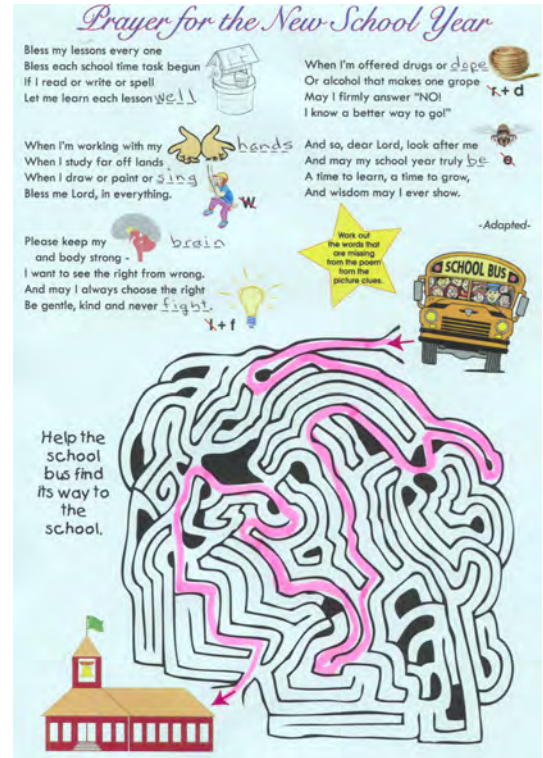 Prayer for the New School Year
Bless my lessons every one
Bless each school time task begun
If I read or write or spell
Let me learn each lesson well
When I'm working with my hands
When I study far off lands
When I draw or paint or sing
Bless me Lord, in everything.
w
Please keep my brain
and body strong -
I want to see the right from wrong.
And may I always choose the right
Be gentle, kind and never fight.
l + f
When I'm offered drugs or dope
Or alcohol that makes one grope
r + d
May I firmly answer "NO!
I know a better way to go!"
And so, dear Lord, look after me
And may my school year truly be
e
A time to learn, a time to grow,
And wisdom may I ever show.
-Adapted-
Work out
the words that
are missing
from the poem
from the
picture clues.
SCHOOL BUS
Help the
school
bus find
its way to
the
school.